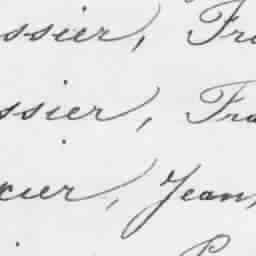 ssier, Fra
ssier, Fra
xier, Jean,